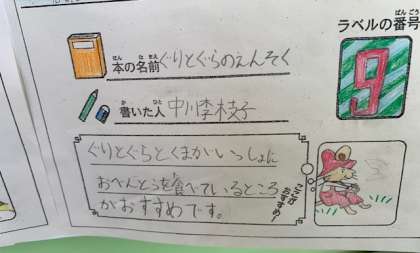 ラベルの番号
ばんごう
9
本の名前 ぐりとぐらのえんそく
ほん なまえ
書いた人 中川李枝子
か ひと
ぐりとぐらとくまがいっしょに
おべんとうを食べているところ
がおすすめです。
ここがおすすめ!